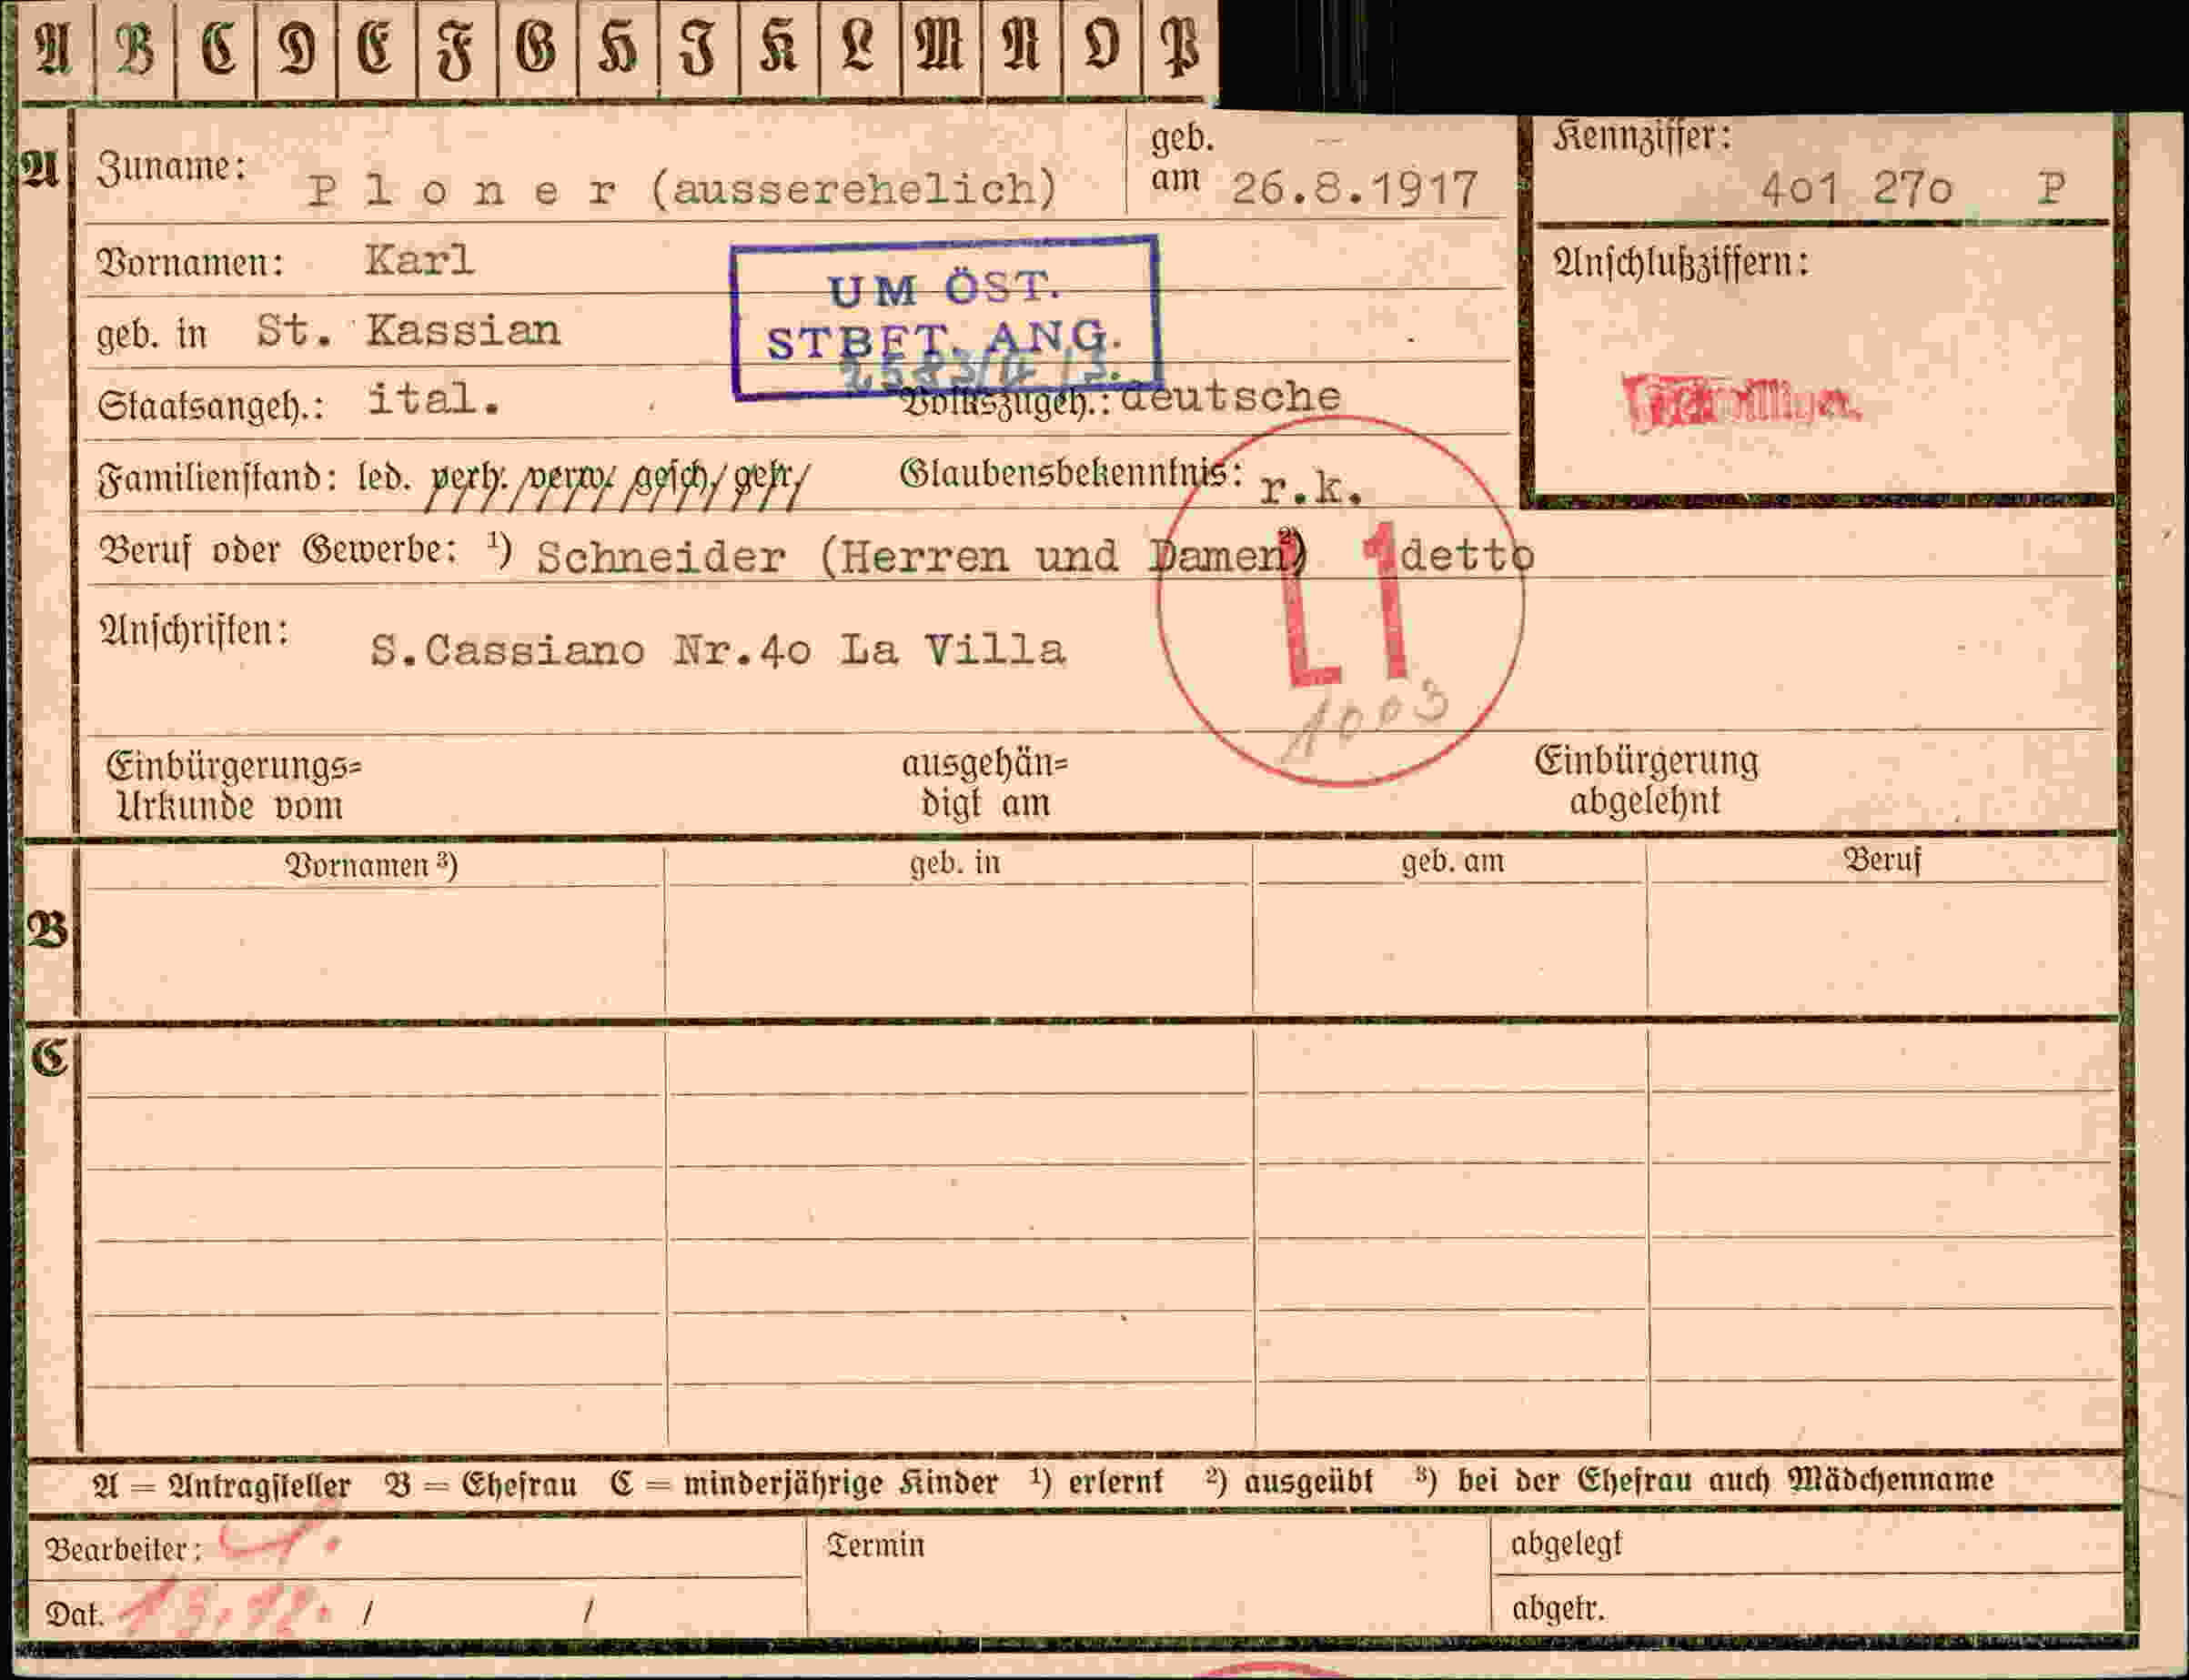 A B C D E F G H I K L M N O P
A Zuname: Ploner (ausserehelich) geb. am 26.8.1917 Kennziffer: 401 270 P
Vornamen: Karl
UM ÖST.
STBET. ANG.
Anschlußziffern:
geb. in St. Kassian
Staatsangeh.: ital. Volkszugeh.: deutsche
Familienstand: led. verh. verw. gesch. getr. Glaubensbekenntnis: r.k.
Beruf oder Gewerbe: ¹) Schneider (Herren und Damen) ²) detto
L1
Anschriften: S.Cassiano Nr.40 La Villa
1003
Einbürgerungs=
Urkunde vom
ausgehän=
digt am
Einbürgerung
abgelehnt
Vornamen ³) geb. in geb. am Beruf
B
C
A = Antragsteller B = Ehefrau C = minderjährige Kinder ¹) erlernt ²) ausgeübt ³) bei der Ehefrau auch Mädchenname
Bearbeiter: Termin abgelegt
Dat. 13.12. / / abgetr.